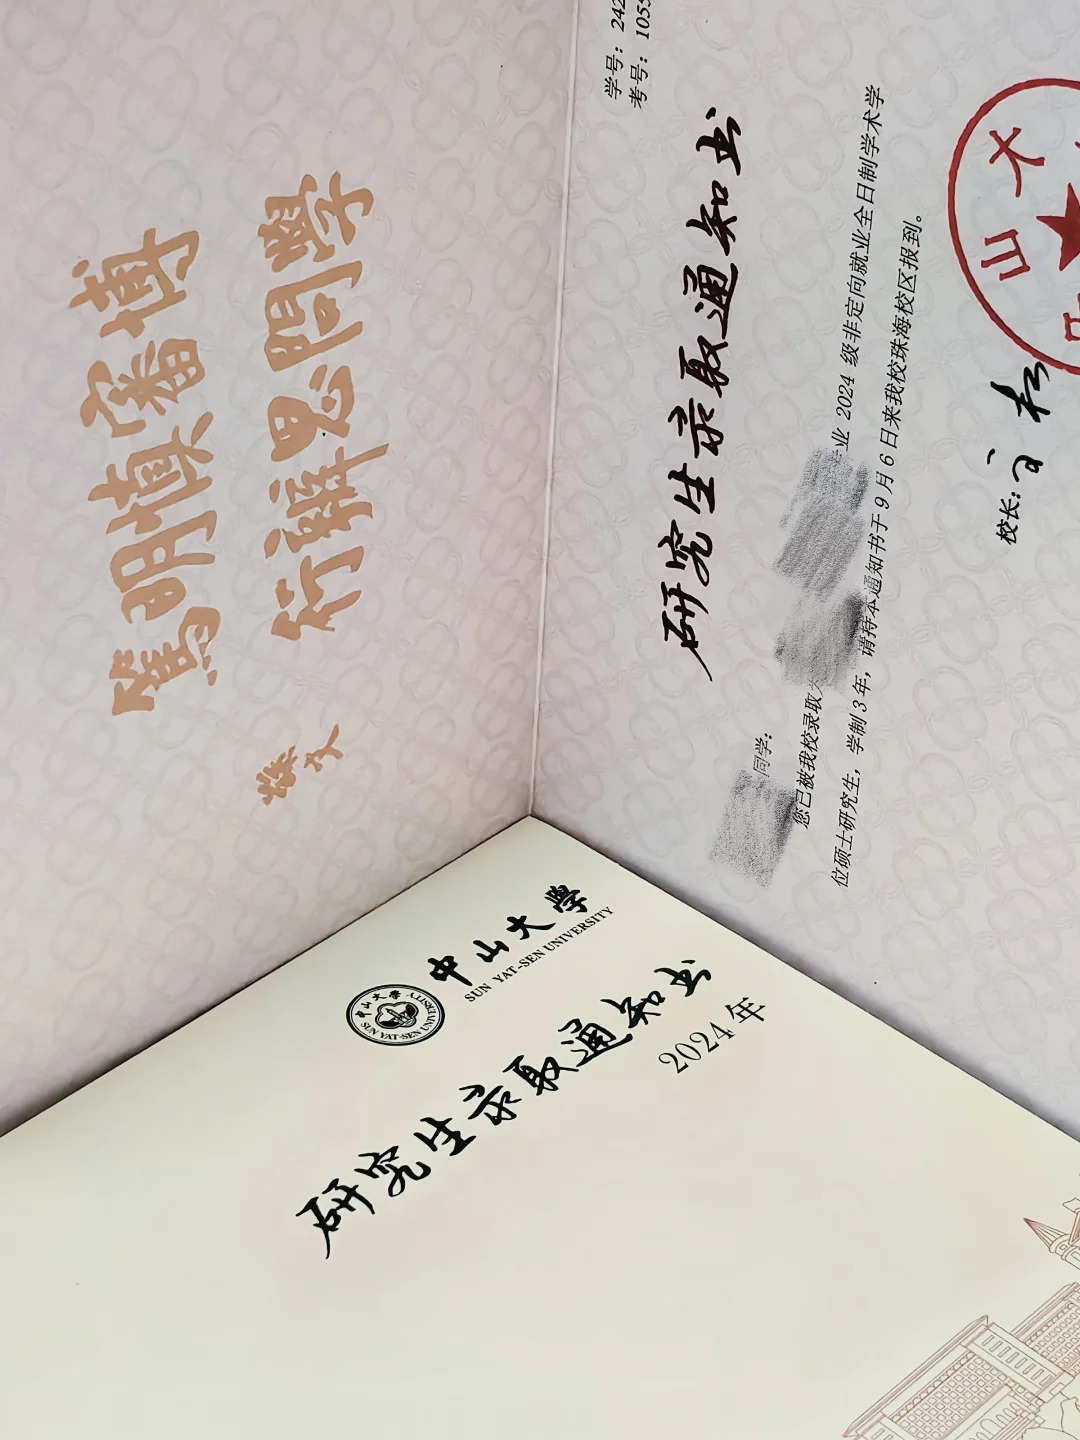 博學
審問
慎思
明辨
篤行
孫文
学号：242
考号：1055
研究生录取通知书
同学：
您已被我校录取为
专业 2024 级非定向就业全日制学术学
位硕士研究生，学制 3 年，请持本通知书于 9 月 6 日来我校珠海校区报到。
校长：
山大
中山大學
SUN YAT-SEN UNIVERSITY
中山大學
SUN YAT-SEN UNIVERSITY
研究生录取通知书
2024 年